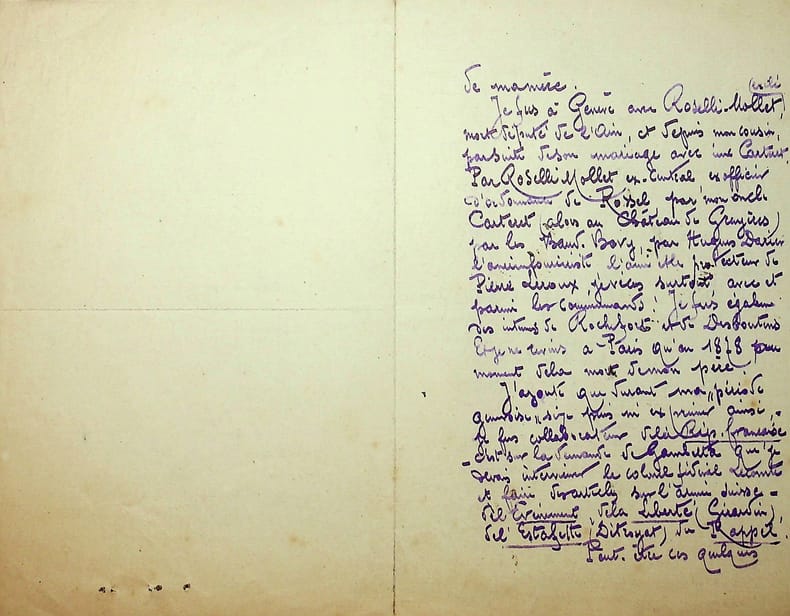 de ma mère.
(exilé
Je fus à Genève avec Roselli-Mollet,
mort député de l'Ain, et depuis mon cousin,
par suite de son mariage avec une Carteret.
Par Roselli Mollet ex-Central ex officier
d'ordonnance de Rossel, par mon oncle
Carteret (alors au Château de Gruyères)
par les Baud-Bovy, par Hugues Darier
l'ancien l'ami et le protecteur de
Pierre Leroux, je vécus surtout avec et
parmi les Communards. Je fus également
des intimes de Rochefort et de Desboutins
Et je ne revins à Paris qu'en 1878 peu
moment de la mort de mon père.
J'ajoute que durant ma „période
genevoise„ si je puis m'exprimer ainsi, -
je fus collaborateur de la Rép. française
c'est sur la demande de Gambetta que je
devais interviewer le colonel fédéral Lecomte
et faire des articles sur l'armée suisse -
de l'Evènement, de la Liberté (Girardin)
de l'Estafette (Détroyat) du Rappel.
Peut-être ces quelques